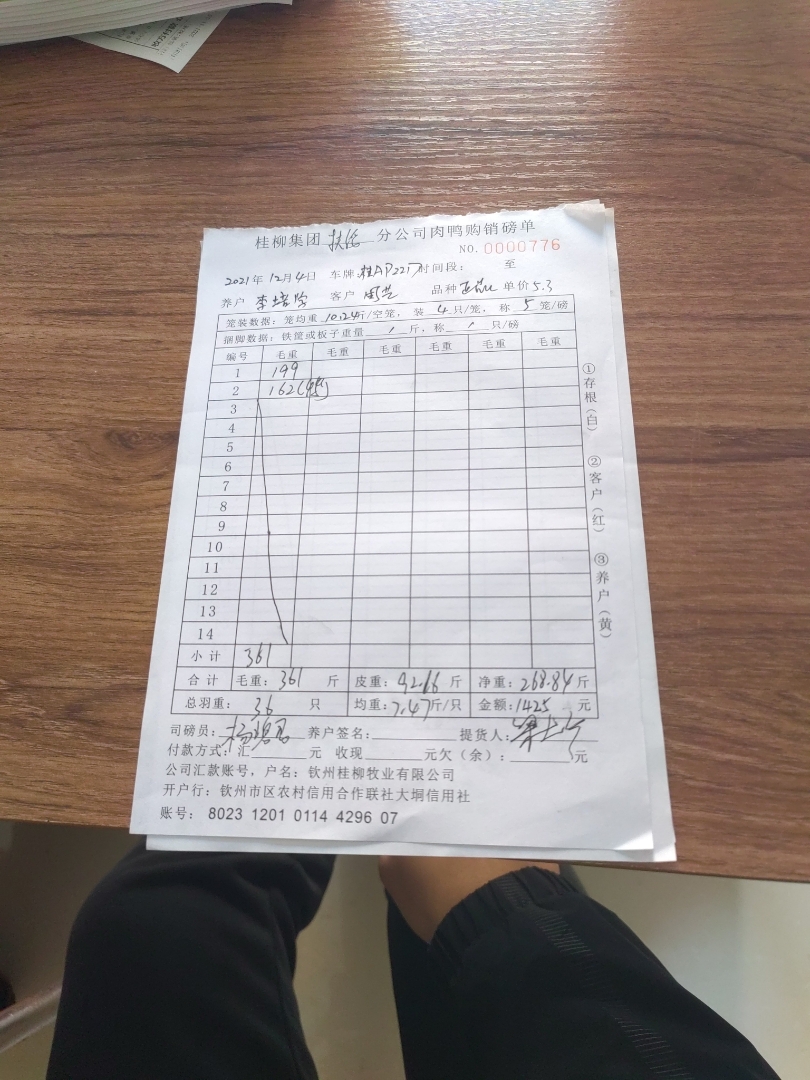 桂柳集团 扶绥 分公司肉鸭购销磅单
NO. 0000776
2021年 12月 4日 车牌:桂AP2217 时间段: 至
养户 李培学 客户 周兰 品种 单价 5.3
笼装数据:笼均重 10.24斤/空笼, 装 4 只/笼, 称 5 笼/磅
捆脚数据:铁筐或板子重量 / 斤,称 / 只/磅
编号 毛重 毛重 毛重 毛重 毛重 毛重
1 199
2 162(4笼)
3
4
5
6
7
8
9
10
11
12
13
14
小计 361
合计 毛重: 361 斤 皮重: 92.16 斤 净重: 268.84 斤
总羽重: 36 只 均重: 7.47斤/只 金额: 1425 元
司磅员: 养户签名: 提货人:
付款方式:汇 元 收现 元欠(余): 元
公司汇款账号,户名:钦州桂柳牧业有限公司
开户行:钦州市区农村信用合作联社大垌信用社
账号: 8023 1201 0114 4296 07
①存根(白)
②客户(红)
③养户(黄)